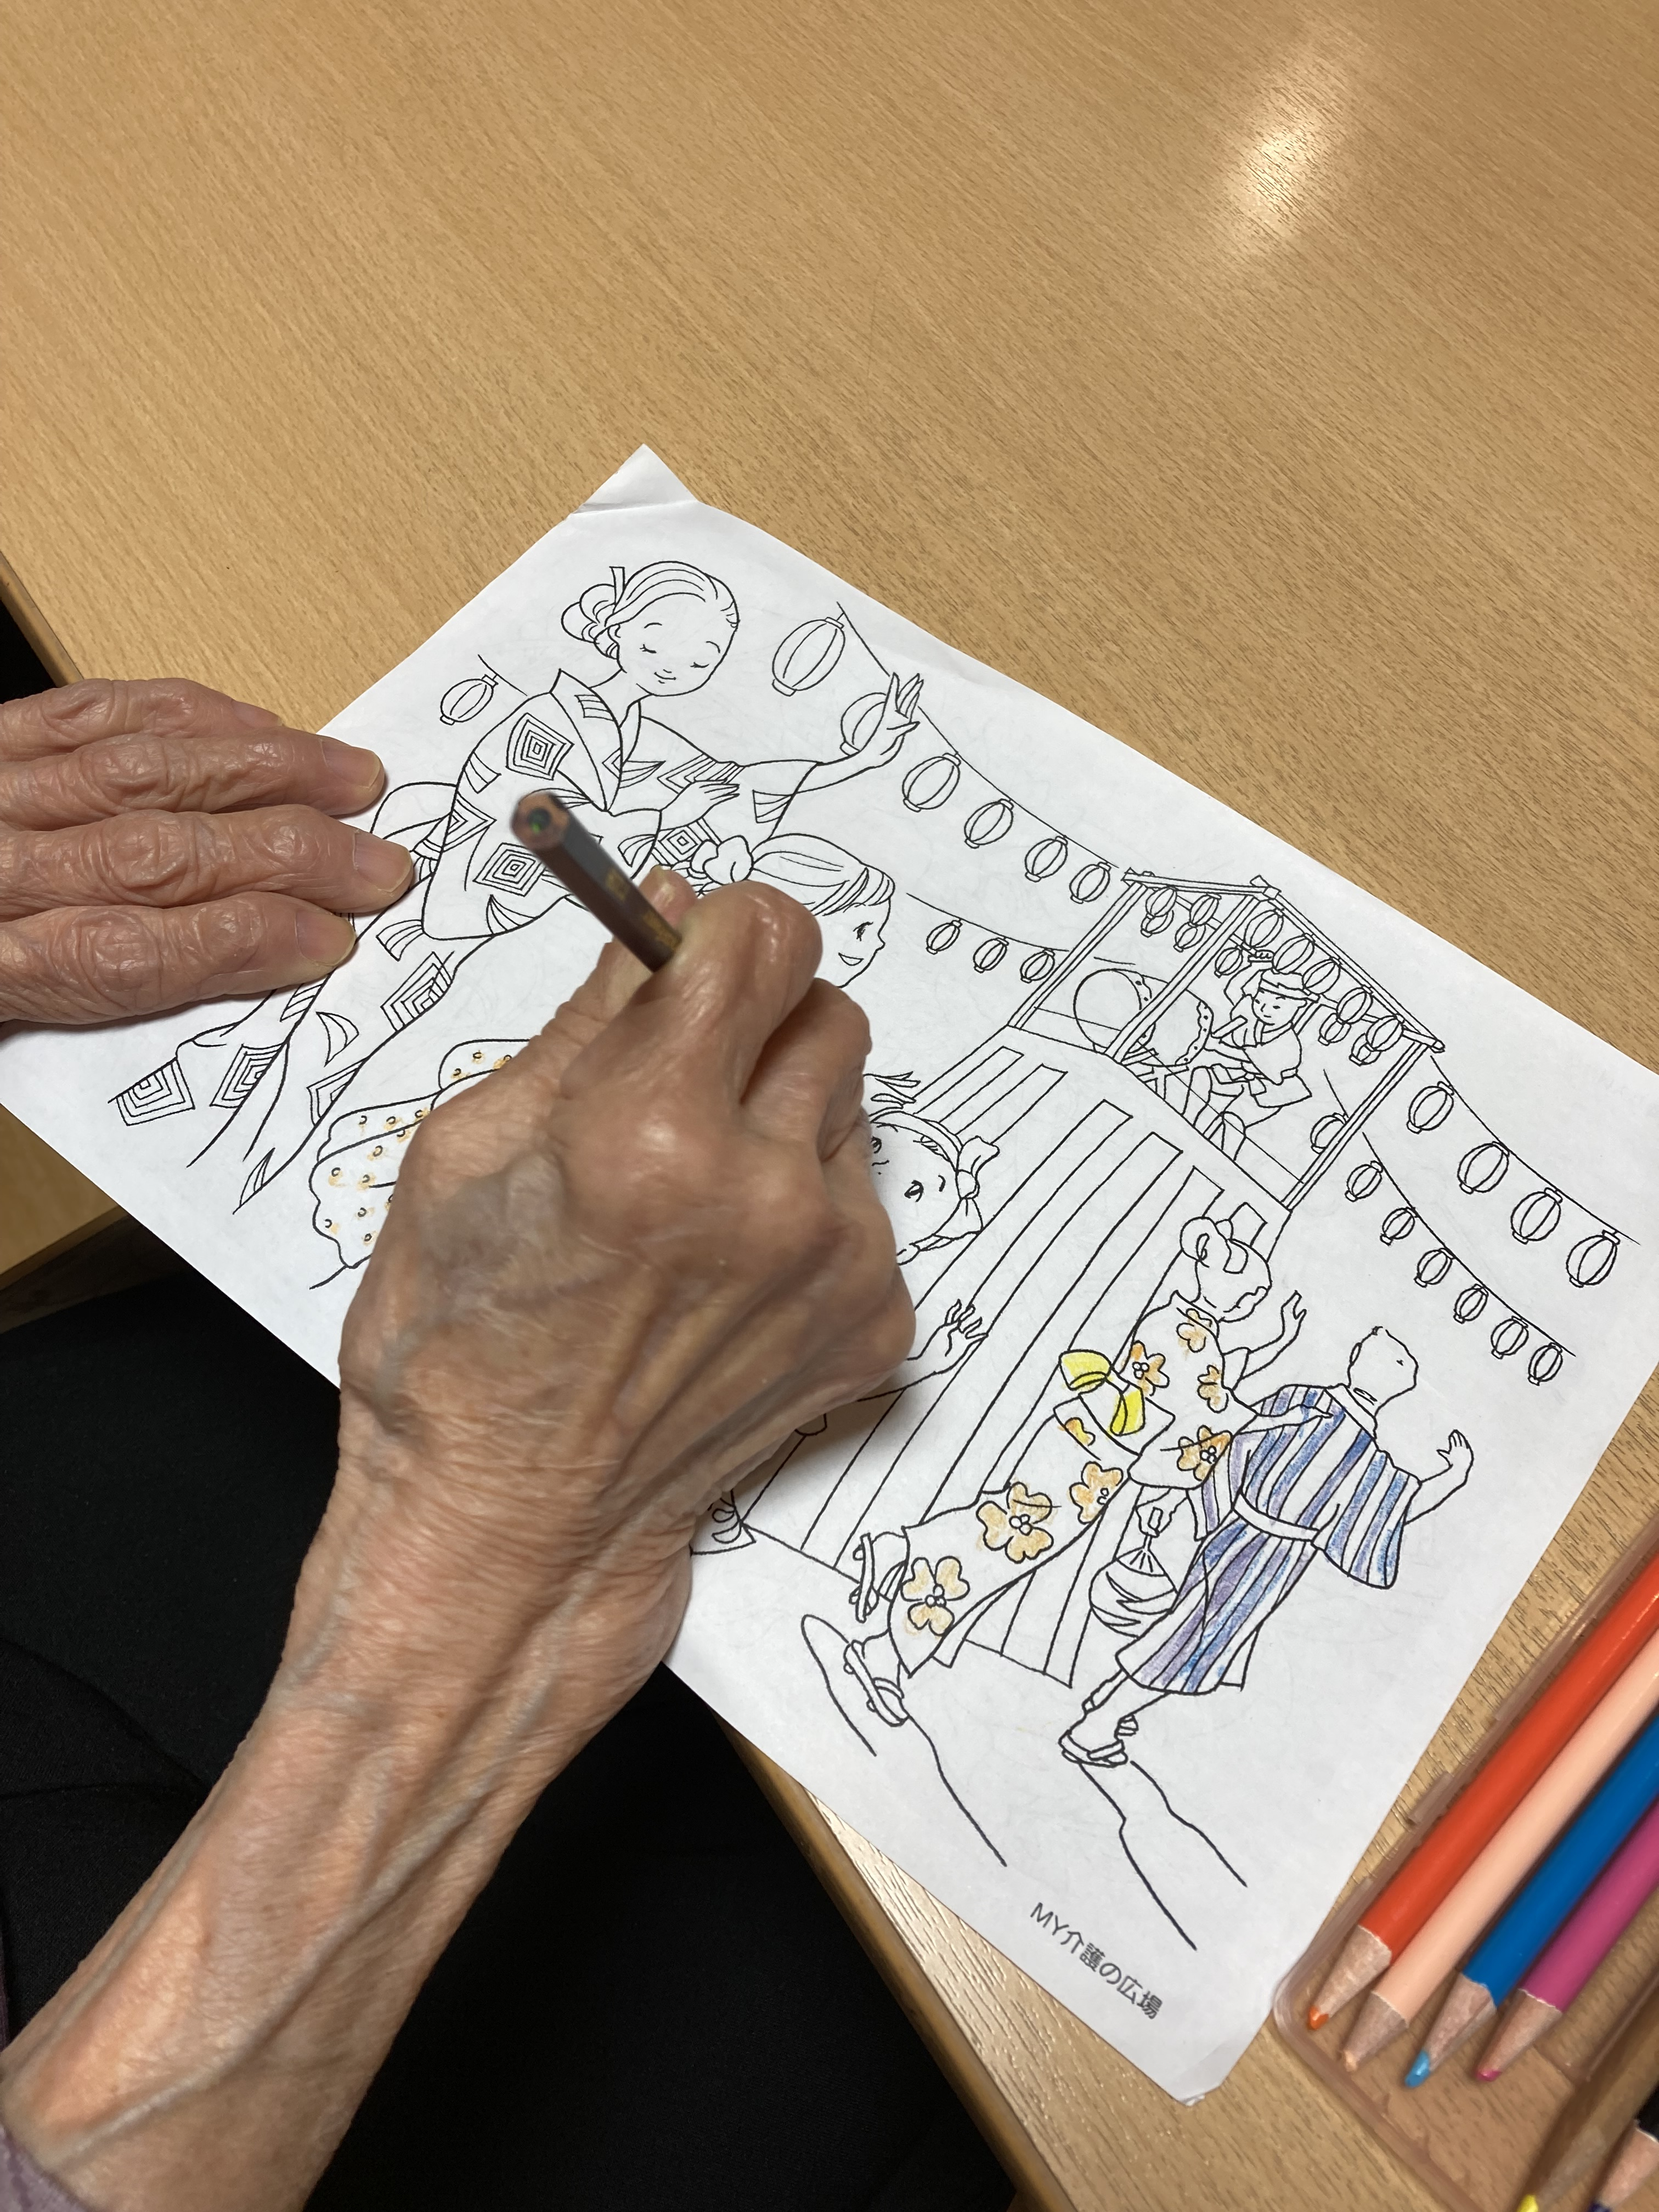 MY介護の広場